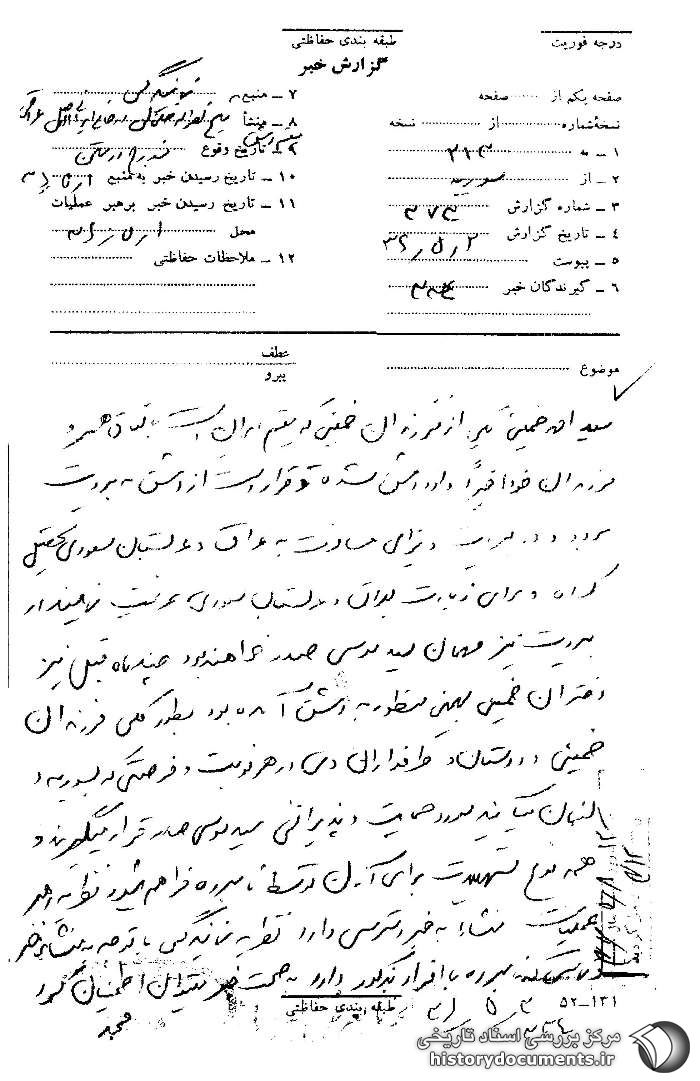 درجه فوریت
طبقه بندی حفاظتی
گزارش خبر
صفحه یکم از صفحه
نسخهٔ شماره از نسخه
۱ – به ۳۱۳
۲ – از سوریه
۳ – شماره گزارش
۴ – تاریخ گزارش
۵ – پیوست
۶ – گیرندگان خبر
۷ – منبع
۸ – منشأ
۹ – تاریخ وقوع
۱۰ – تاریخ رسیدن خبر به منبع
۱۱ – تاریخ رسیدن خبر برهبر عملیات
محل
۱۲ – ملاحظات حفاظتی
موضوع
عطف
پیرو
خمینی یکی از فرزندان خمینی که مقیم ایران است باتفاق همسر و
فرزندان خود اخیراً وارد دمشق شده و قرار است از دمشق به بیروت
برود و در بیروت ویزای مسافرت به عراق و عربستان سعودی تحصیل
کرده و برای زیارت بعراق و عربستان سعودی عزیمت نمایند در
بیروت نیز مهمان سید موسی صدر خواهند بود چند ماه قبل نیز
دختران خمینی بهمین منظور به دمشق آمده بود بطور کلی فرزندان
خمینی و دوستان و طرفداران وی در هر نوبت و فرصتی که بسوریه و
لبنان میآیند مورد حمایت و پذیرائی سید موسی صدر قرار میگیرند و
همه نوع تسهیلات برای آنان توسط نامبرده فراهم میشود نظریه رهبر
عملیات منشاء به خبر دسترسی دارد نظریه نمایندگی با توجه به
نامبرده با افراد مذکور دارد به صحت خبر میتوان اطمینان کرد
طبقه بندی حفاظتی
۵۲–۱۳۱
مرکز بررسی اسناد تاریخی
historydocuments.ir